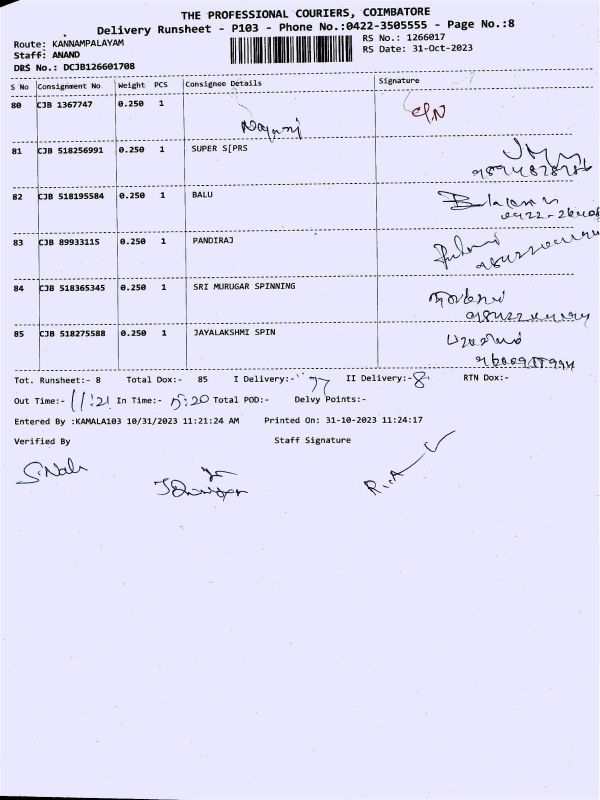 THE PROFESSIONAL COURIERS, COIMBATORE
Delivery Runsheet - P103 - Phone No.:0422-3505555 - Page No.:8
Route: KANNAMPALAYAM RS No.: 1266017
Staff: ANAND RS Date: 31-Oct-2023
DRS No.: DCJB126601708
S No Consignment No Weight PCS Consignee Details Signature
80 CJB 1367747 0.250 1
81 CJB 518256991 0.250 1 SUPER S[PRS
82 CJB 518195584 0.250 1 BALU
83 CJB 89933115 0.250 1 PANDIRAJ
84 CJB 518365345 0.250 1 SRI MURUGAR SPINNING
85 CJB 518275588 0.250 1 JAYALAKSHMI SPIN
Tot. Runsheet:- 8 Total Dox:- 85 I Delivery:- 77 II Delivery:- 8 RTN Dox:-
Out Time:- 11:21 In Time:- 15:20 Total POD:- Delvy Points:-
Entered By :KAMALA103 10/31/2023 11:21:24 AM Printed On: 31-10-2023 11:24:17
Verified By Staff Signature